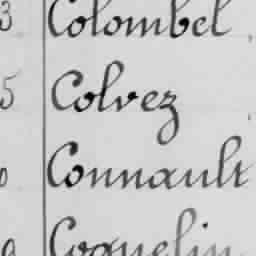 3 Colombel
5 Colvez
Connault
9 Coquelin